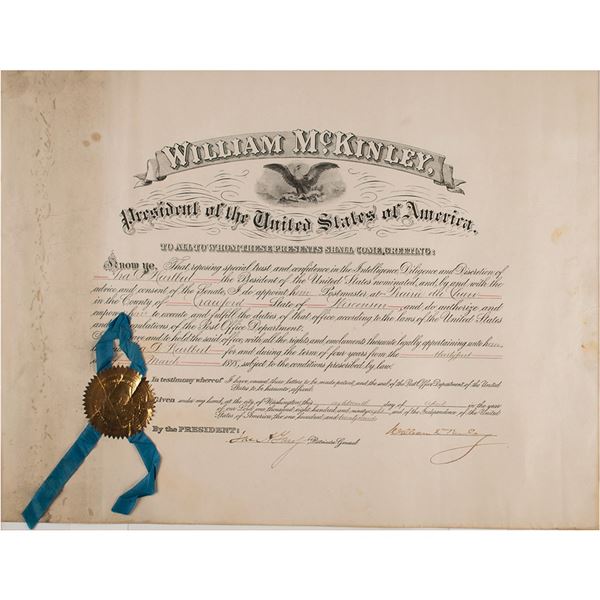 WILLIAM McKINLEY,
President of the United States of America.
TO ALL TO WHOM THESE PRESENTS SHALL COME, GREETING:
Know ye, That reposing special trust and confidence in the Intelligence Diligence and Discretion of
Ira D. Hurlbut the President of the United States nominated, and, by and with the
advice and consent of the Senate, I do appoint him Postmaster at Prairie du Chien
in the County of Crawford State of Wisconsin and do authorize and
empower him to execute and fulfill the duties of that office according to the laws of the United States
and Regulations of the Post Office Department:
To have and to hold the said office, with all the rights and emoluments thereunto legally appertaining unto him
Ira D. Hurlbut for and during the term of four years from the
March 1898, subject to the conditions prescribed by law.
In testimony whereof I have caused these letters to be made patent, and the seal of the Post Office Department of the United
States to be hereunto affixed.
Given under my hand, at the city of Washington, this eighteenth day of in the year
of our Lord one thousand eight hundred and ninety eight and of the Independence of the United
States of America, the one hundred and twenty second
By the PRESIDENT: William McKinley
Jas. A. Gary Postmaster General